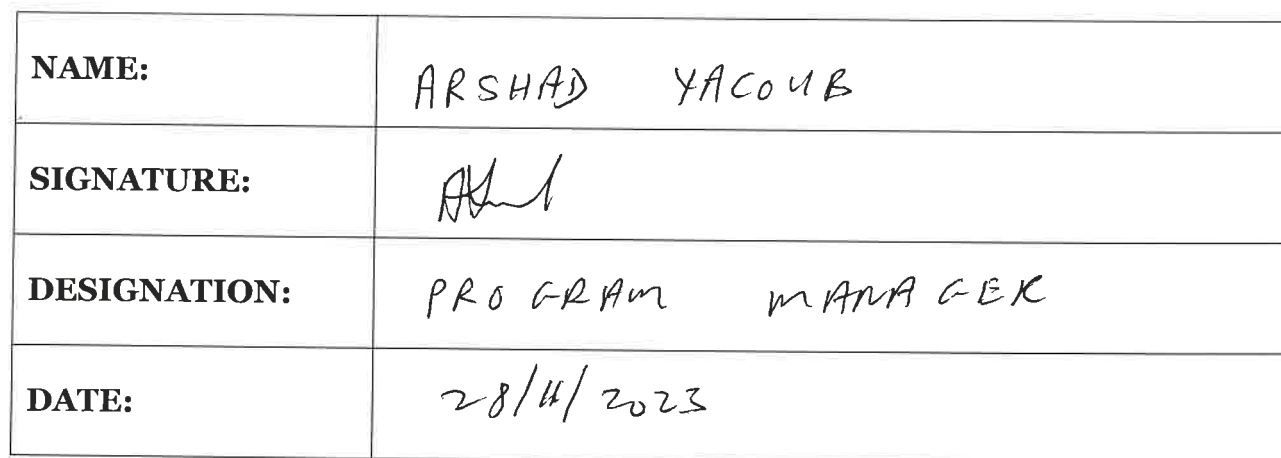 NAME: ARSHAD YACOUB
SIGNATURE:
DESIGNATION: PROGRAM MANAGER
DATE: 28/11/2023